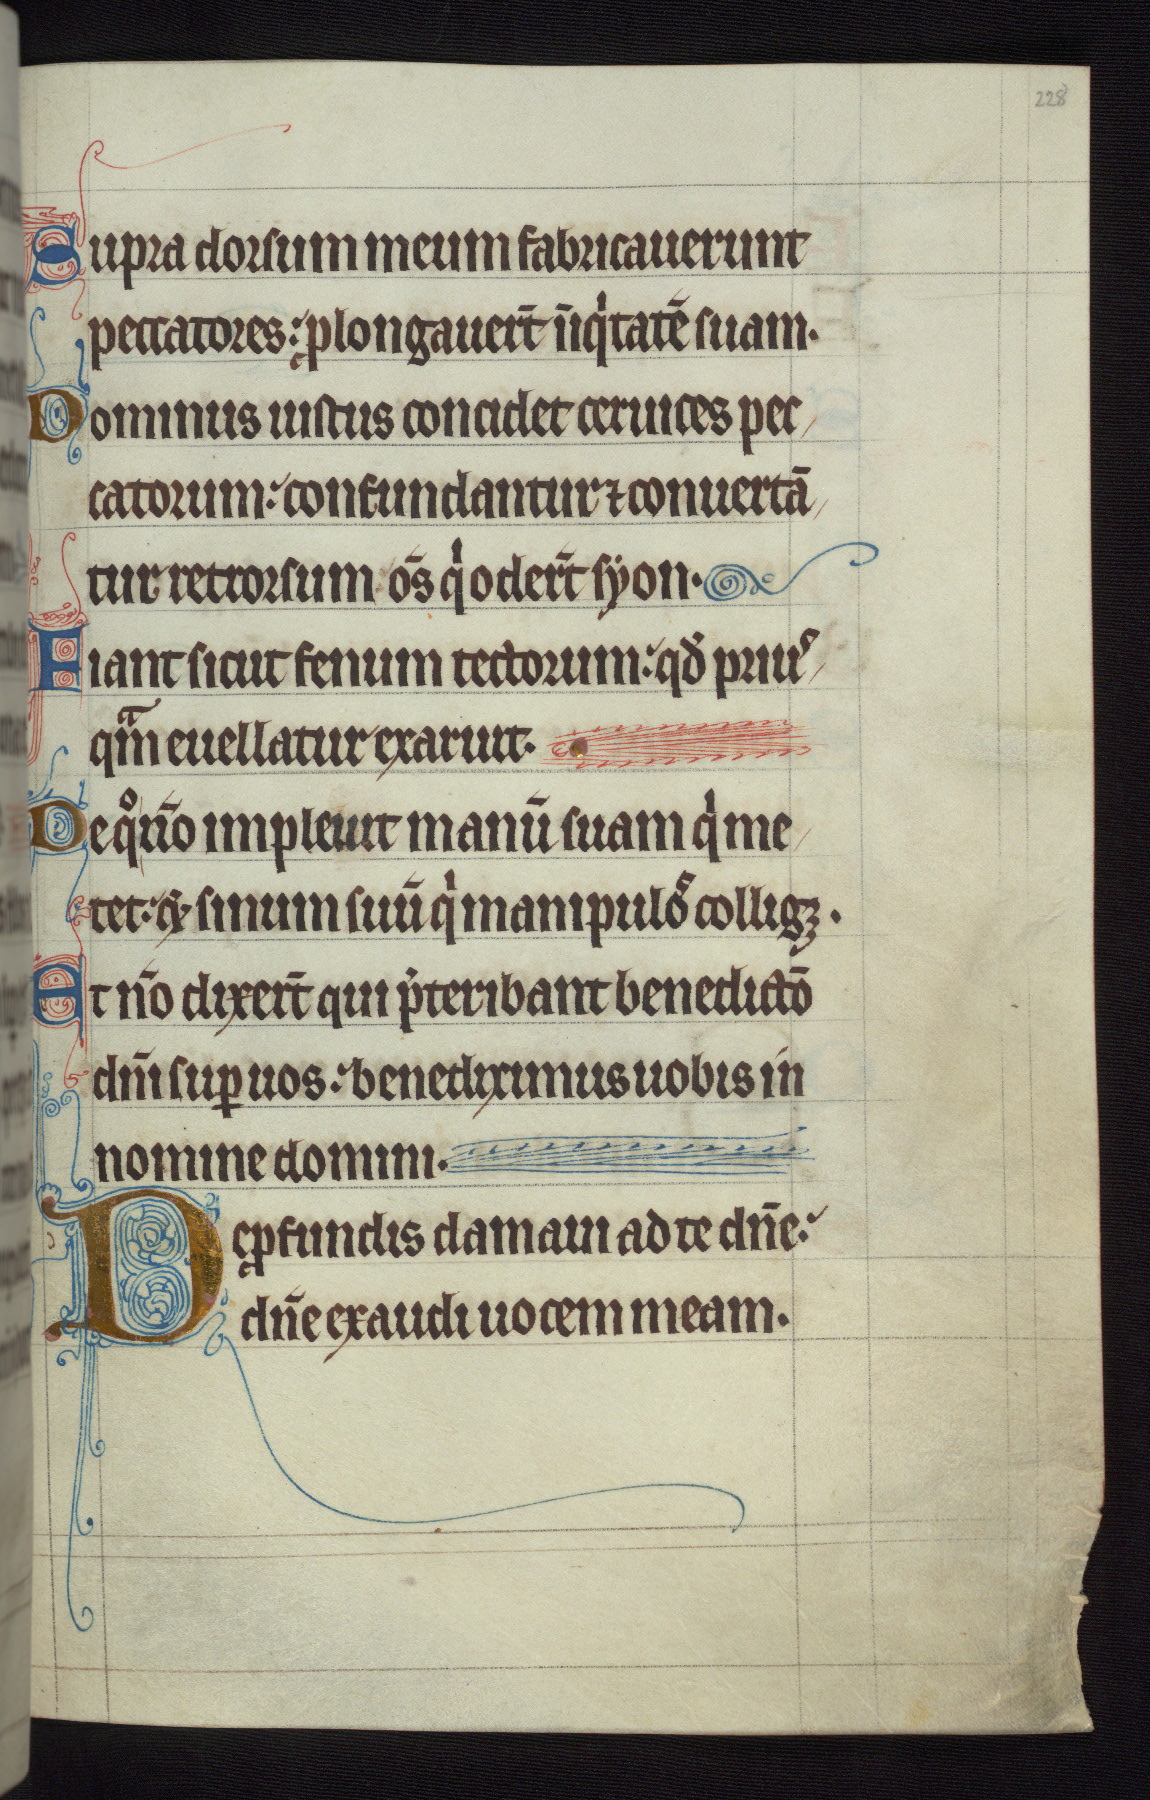 228
Supra dorsum meum fabricauerunt
peccatores: ꝓlongauert̄ īiq̇tatē suam.
Dominus iustus concidet ceruices pec/
catorum: confundantur ⁊ conuertā/
tur retrorsum om̄s q̇ oder̄t syon.
Fiant sicut fenum tectorum: qđ priusꝰ/
qᵃm euellatur exaruit.
De qͦ nō impleuit manū suam q̇ me/
tet: & sinum suū q̇ manipulos colligꝫ.
Et nō dixer̄t qui p̄teribant benedictō
dn̄i suꝑ uos: benediximus uobis in
nomine domini.
De ꝓfundis clamaui ad te dn̄e:
dn̄e exaudi uocem meam.